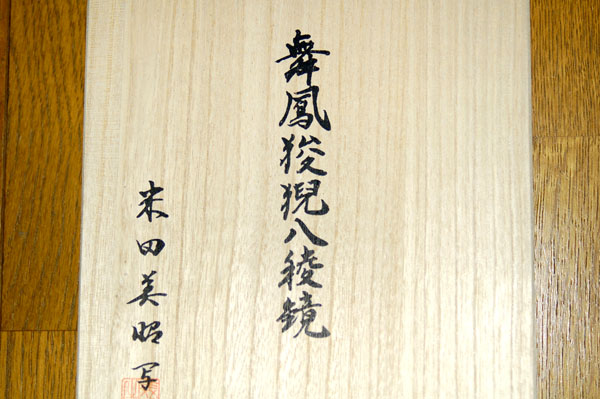 舞鳳狻猊八稜鏡
米田美昭写